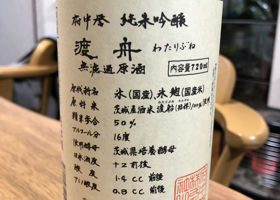 府中誉 純米吟醸
渡舟 わたりぶね
無濾過原酒
内容量720ml
原材料名 米(国産)米麹(国産米)
原料米 茨城産酒米渡船(短稈)100%使用
精米歩合 50%
アルコール分 16度
使用酵母 茨城県培養酵母
日本酒度 +2前後
酸度 1.4cc前後
アミノ酸度 0.8cc前後